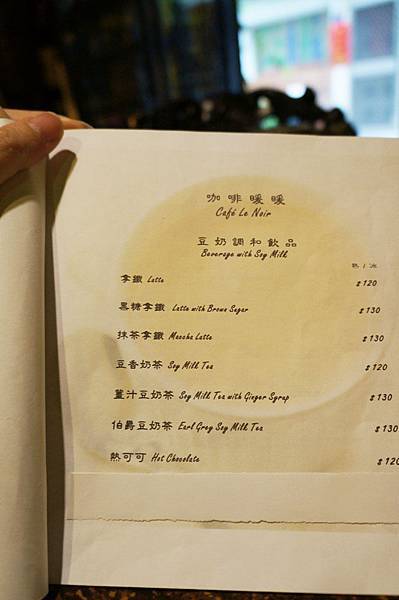 咖啡暖暖
Café Le Noir
豆奶調和飲品
Beverage with Soy Milk
熱 / 冰
拿鐵 Latte $120
黑糖拿鐵 Latte with Brown Sugar $130
抹茶拿鐵 Maccha Latte $130
豆香奶茶 Soy Milk Tea $120
薑汁豆奶茶 Soy Milk Tea with Ginger Syrup $130
伯爵豆奶茶 Earl Grey Soy Milk Tea $130
熱可可 Hot Chocolate $120